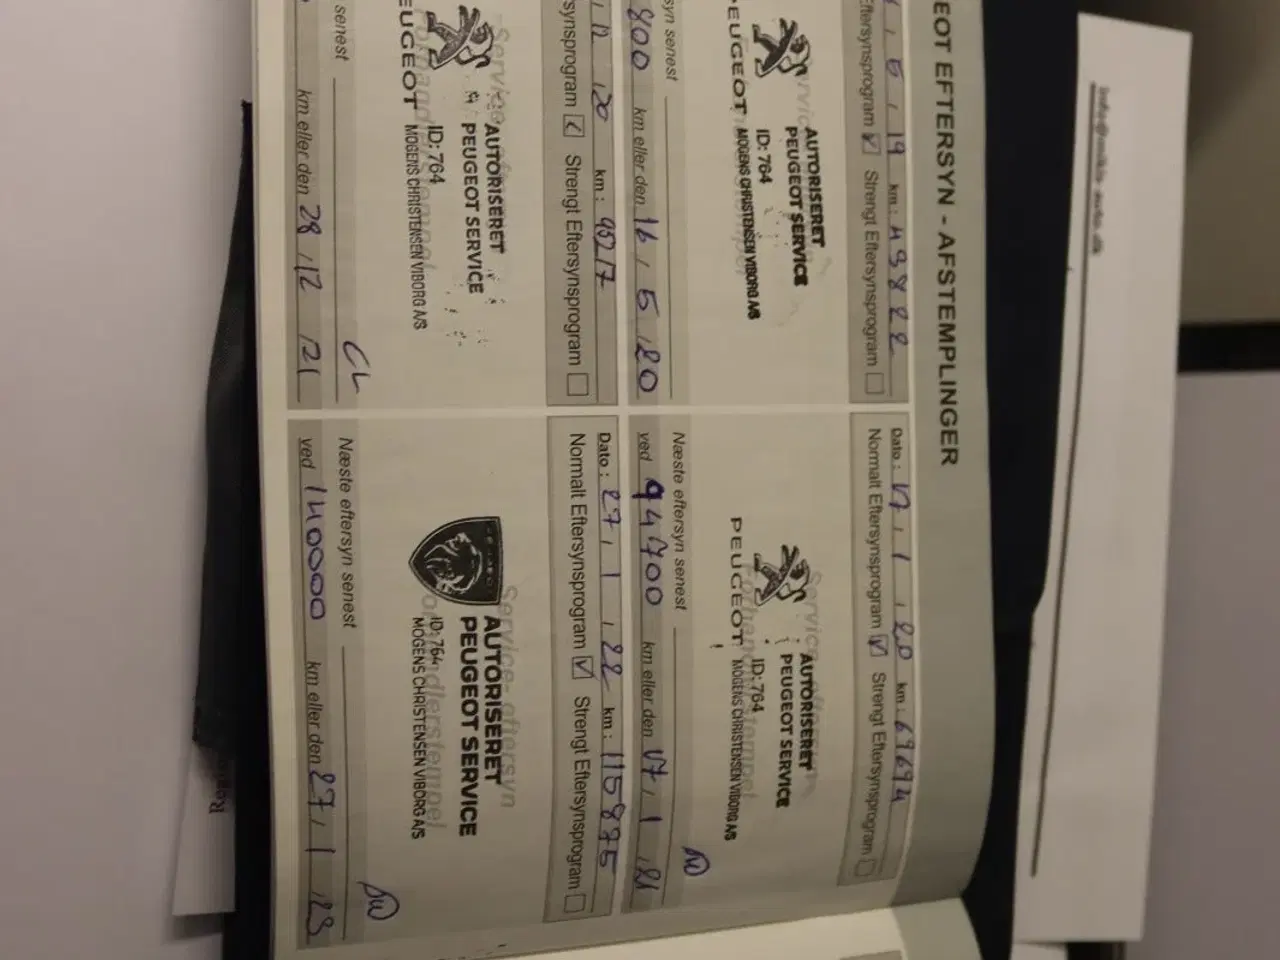 EOT EFTERSYN - AFSTEMPLINGER
5 . 19 km : 49822
Eftersynsprogram ☑ Strengt Eftersynsprogram ☐
AUTORISERET
PEUGEOT SERVICE
ID: 764
PEUGEOT MOGENS CHRISTENSEN VIBORG A/S
syn senest
km eller den 16 . 5 . 20
12 . 20 km : 93217
synsprogram ☑ Strengt Eftersynsprogram ☐
AUTORISERET
PEUGEOT SERVICE
ID: 764
PEUGEOT MOGENS CHRISTENSEN VIBORG A/S
CL
senest
km eller den 28 . 12 . 21
Dato : 17 . 1 . 20 km : 69694
Normalt Eftersynsprogram ☑ Strengt Eftersynsprogram ☐
Service-eftersyn
Forhandlerstempel
AUTORISERET
PEUGEOT SERVICE
ID: 764
PEUGEOT MOGENS CHRISTENSEN VIBORG A/S
Næste eftersyn senest
ved 94700 km eller den 17 . 1 . 21
Dato : 27 . 1 . 22 km : 115875
Normalt Eftersynsprogram ☑ Strengt Eftersynsprogram ☐
Service-eftersyn
Forhandlerstempel
AUTORISERET
PEUGEOT SERVICE
ID: 764
MOGENS CHRISTENSEN VIBORG A/S
Næste eftersyn senest
ved 140000 km eller den 27 . 1 . 23